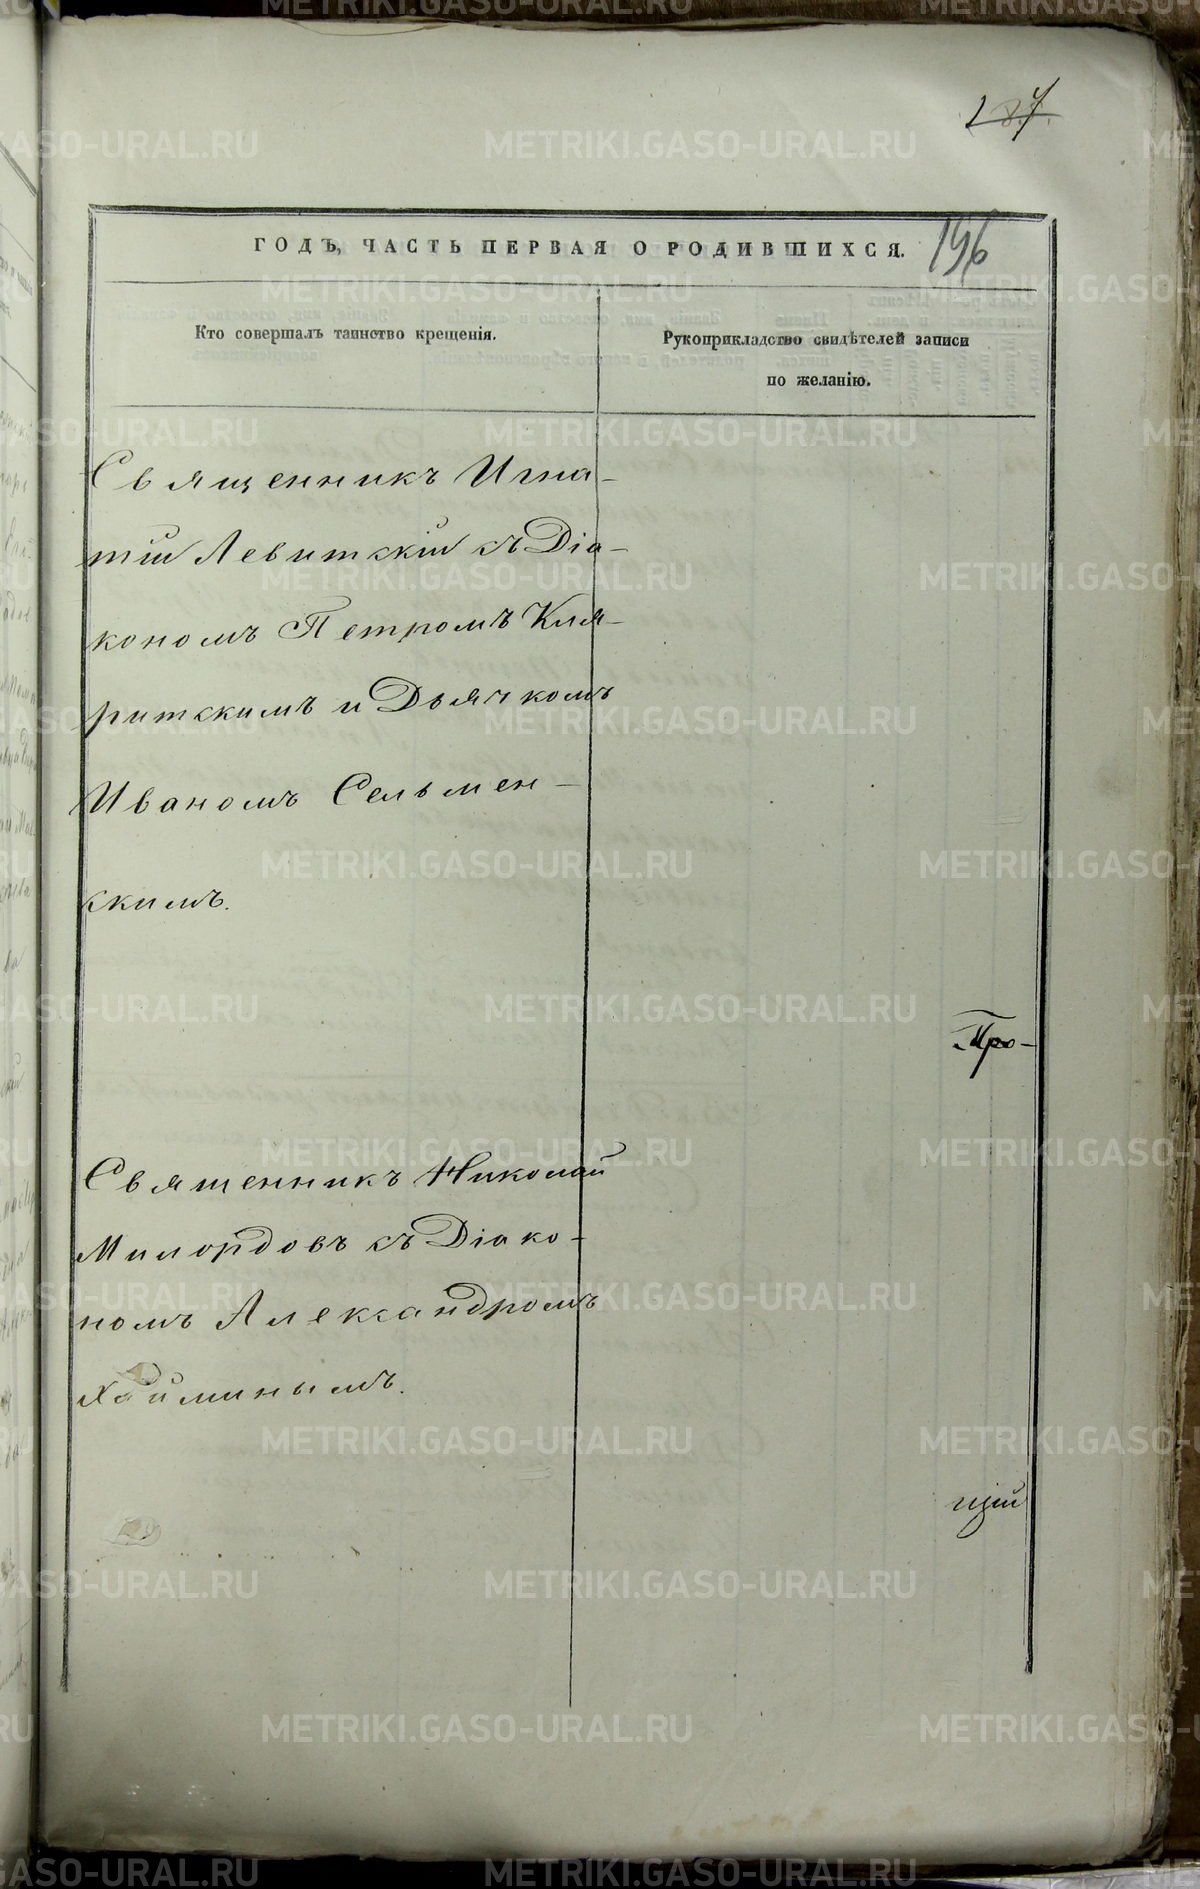 187.
ГОДЪ, ЧАСТЬ ПЕРВАЯ О РОДИВШИХСЯ.
196
Кто совершалъ таинство крещенія.
Рукоприкладство свидѣтелей записи
по желанію.
Священникъ Игна-
тій Левитскій съ Діа-
кономъ Петромъ Кля-
ритскимъ и Дьячкомъ
Иваномъ Сельмен-
скимъ.
Про-
Священникъ Николай
Милордовъ съ Діако-
номъ Александромъ
Хайминымъ.
щій
METRIKI.GASO-URAL.RU